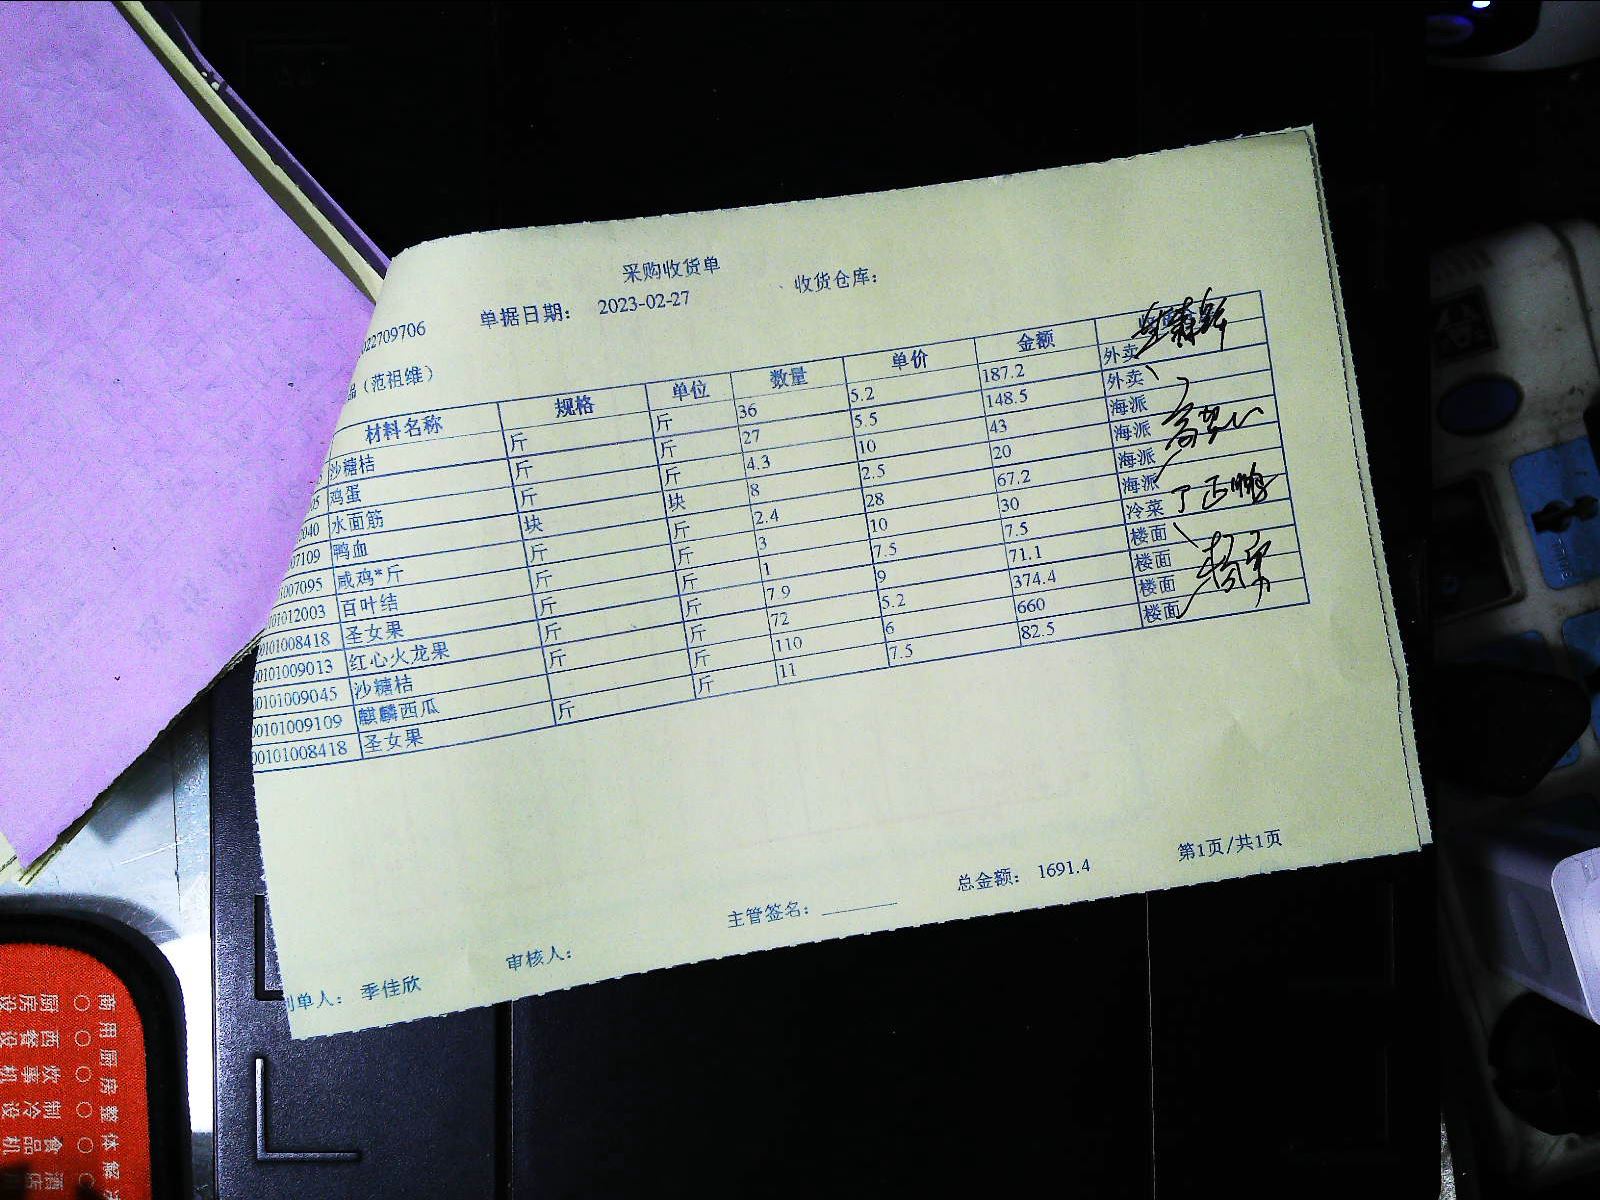 采购收货单
22709706 单据日期： 2023-02-27 收货仓库：
品（范祖维）
材料名称 规格 单位 数量 单价 金额
沙糖桔 斤 斤 36 5.2 187.2 外卖
05 鸡蛋 斤 斤 27 5.5 148.5 外卖
0040 水面筋 斤 斤 4.3 10 43 海派
07109 鸭血 块 块 8 2.5 20 海派
007095 咸鸡*斤 斤 斤 2.4 28 67.2 海派
01012003 百叶结 斤 斤 3 10 30 海派
0101008418 圣女果 斤 斤 1 7.5 7.5 冷菜
00101009013 红心火龙果 斤 斤 7.9 9 71.1 楼面
00101009045 沙糖桔 斤 斤 72 5.2 374.4 楼面
00101009109 麒麟西瓜 斤 110 6 660 楼面
00101008418 圣女果 斤 斤 11 7.5 82.5 楼面
总金额： 1691.4 第1页/共1页
单人： 季佳欣 审核人： 主管签名：
商用厨房整体解
厨房设
西餐设
炊事机
制冷设
食品机
酒店